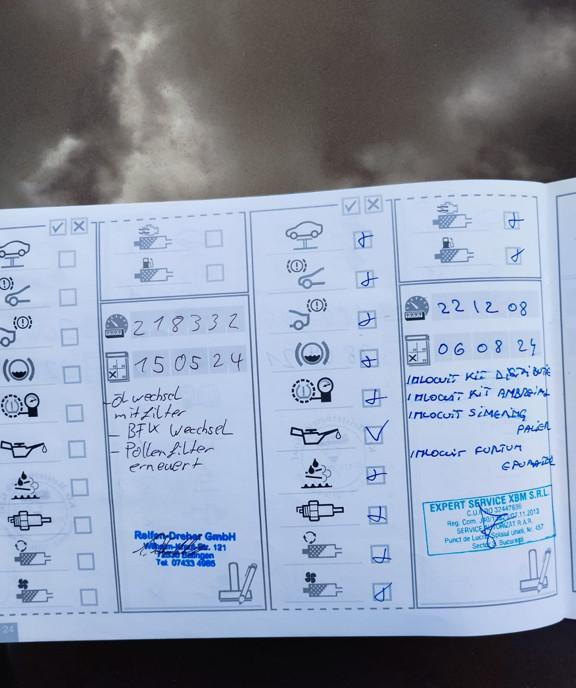 218332
150524
- Ölwechsel
mitfilter
- BFK Wechsel
- Pollenfilter
erneuert
Reifen-Dreher GmbH
121
Balingen
Tel. 07433 4985
24
221208
060824
INLOCUIT KIT DISTRIBUTIE
INLOCUIT KIT AMBREIAJ
INLOCUIT SIMERING
PALIER
INLOCUIT FURTUN
EPURATOR
EXPERT SERVICE XBM S.R.L.
C.U.I. 32447636
Reg. Com. 07.11.2013
SERVICE AUTORIZAT R.A.R.
Punct de Lucru: Splaiul Unirii, Nr. 457
Sector București